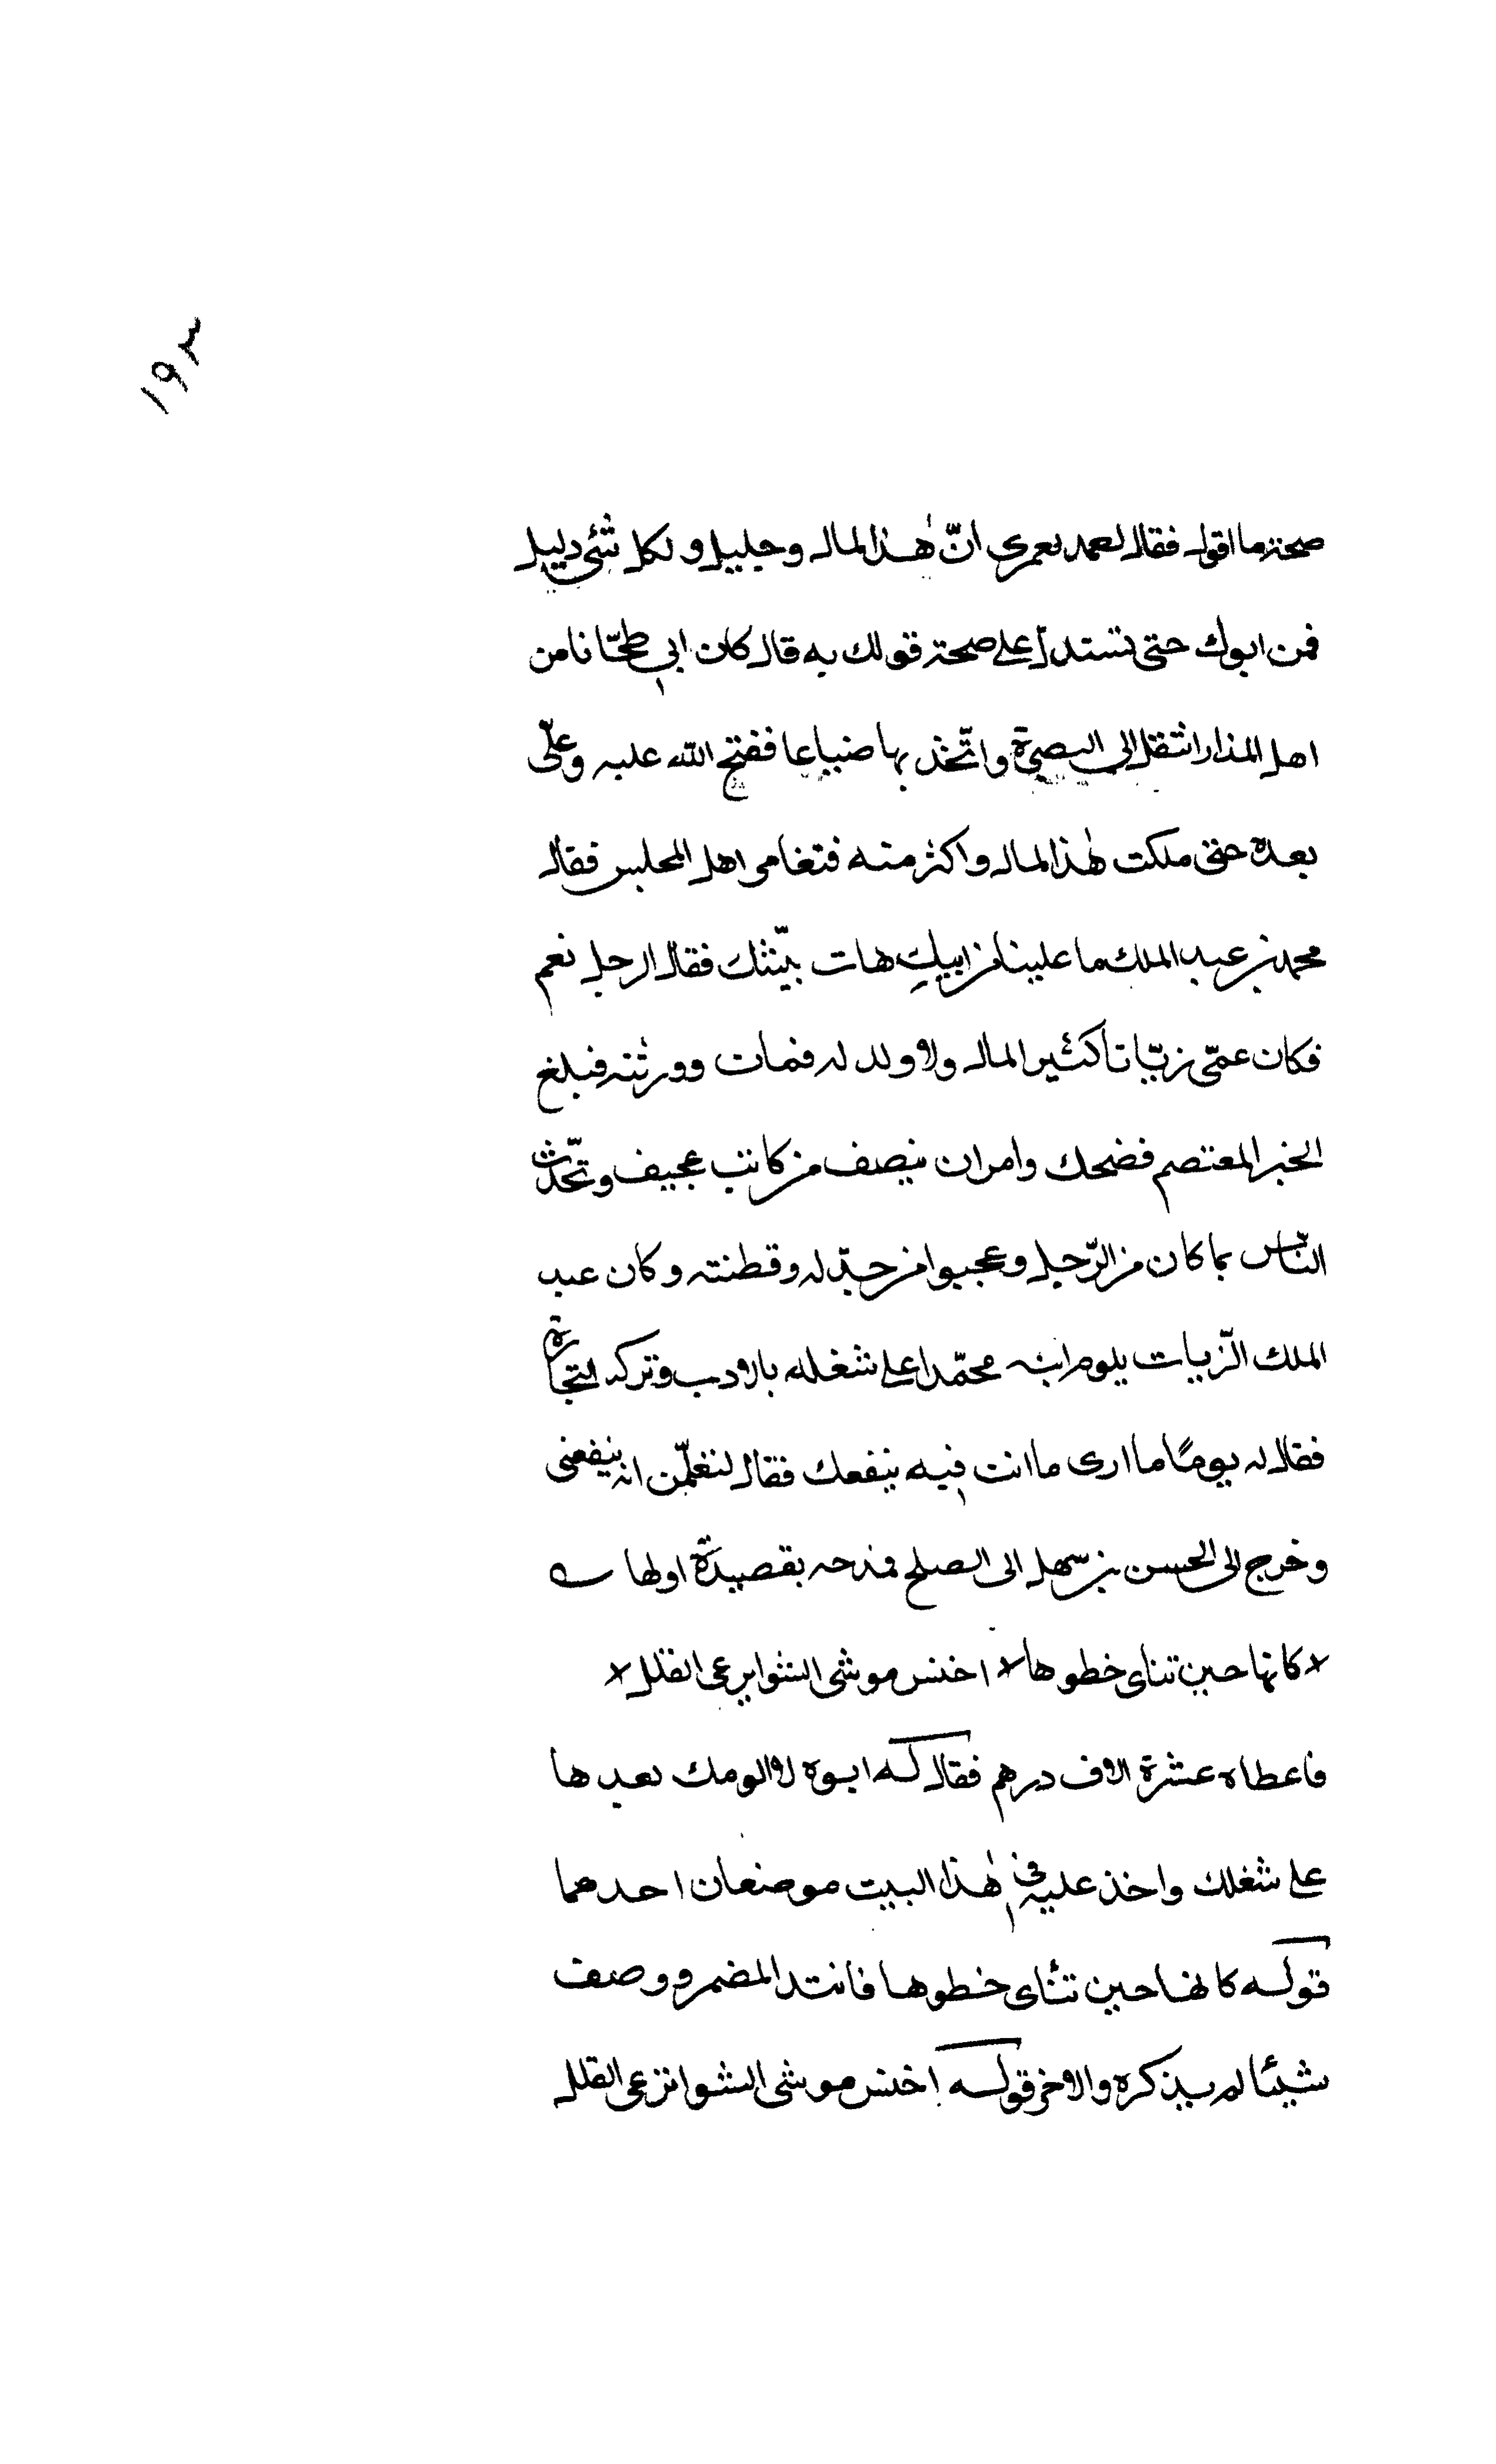 ١٩٣
صحة ما اقول فقال لعمد لعمرى انّ هٰذا لمال وجليل ولكل شئ دليل
فمن ابوك حتى تستدلّ على صحة قولك به قال كان ابى طحّانا من
اهل المذار انتقل الى البصرة واتّخذ بها ضياعا ففتح الله عليه وعلىّ
بعده حتى ملكت هٰذا المال واكثر منه فتغامى اهل المجلس فقال
محمد بن عبد الملك ما علينا من ابيك هات بيّنتك فقال الرجل نعم
فكان عمّى زيّاتا كثير المال ولا ولد له فمات وورثته فبلغ
الخبر المعتصم فضحك وامر ان ينصف من كاتب عجيف وتحدّث
النّاس بما كان من الرّجل وعجبوا من جدّله وقطنته وكان عبد
الملك الزّيات يلوم ابنه محمّدا على شغله بالادب وتركه التجارة
فقال له يومًا ما ارى ما انت فيه ينفعك فقال لتعلمّن انه ينفعنى
وخرج الى الحسن بن سهل الى الصلح فمدحه بقصيدة اولها
كانها حين تناى خطوها اخنس موشى الشوا يرعى القلل
فاعطاه عشرة الاف درهم فقال له ابوه لا الومك بعدها
على شغلك واخذ عليه فى هٰذا البيت موضعان احدهما
قوله كانها حين تنأى خطوها فابتدا المضمر ووصف
شيئا لم يذكره والاخر قوله اخنس موشى الشوا ترعى القلل